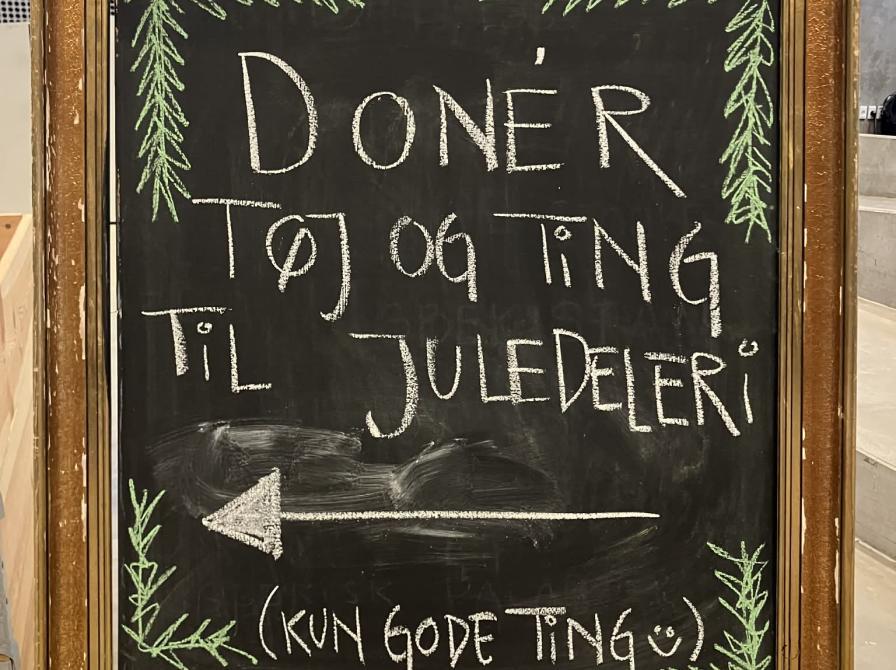 DONÉR
TØJ OG TiNG
TiL JULEDELERi
(KUN GODE TiNG Ü)